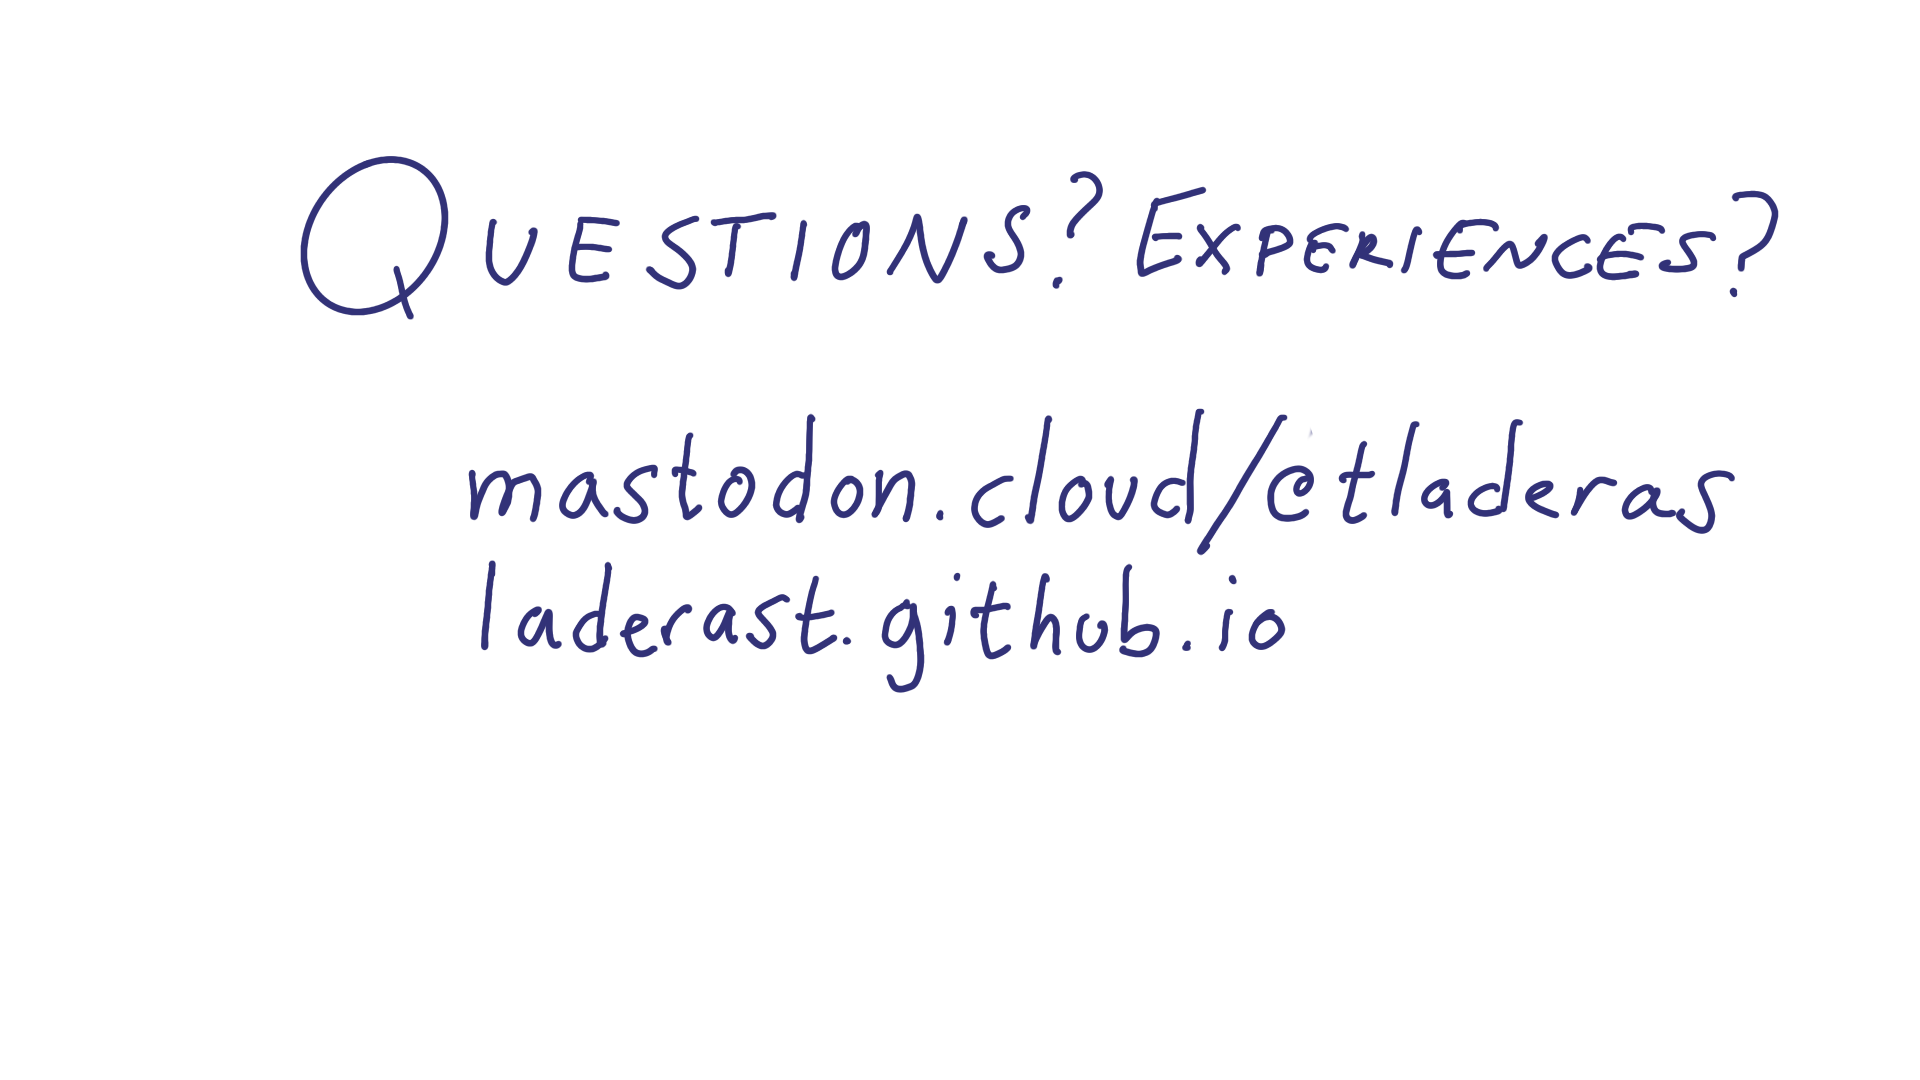 QUESTIONS? EXPERIENCES?
mastodon.cloud/@tladeras
laderast.github.io